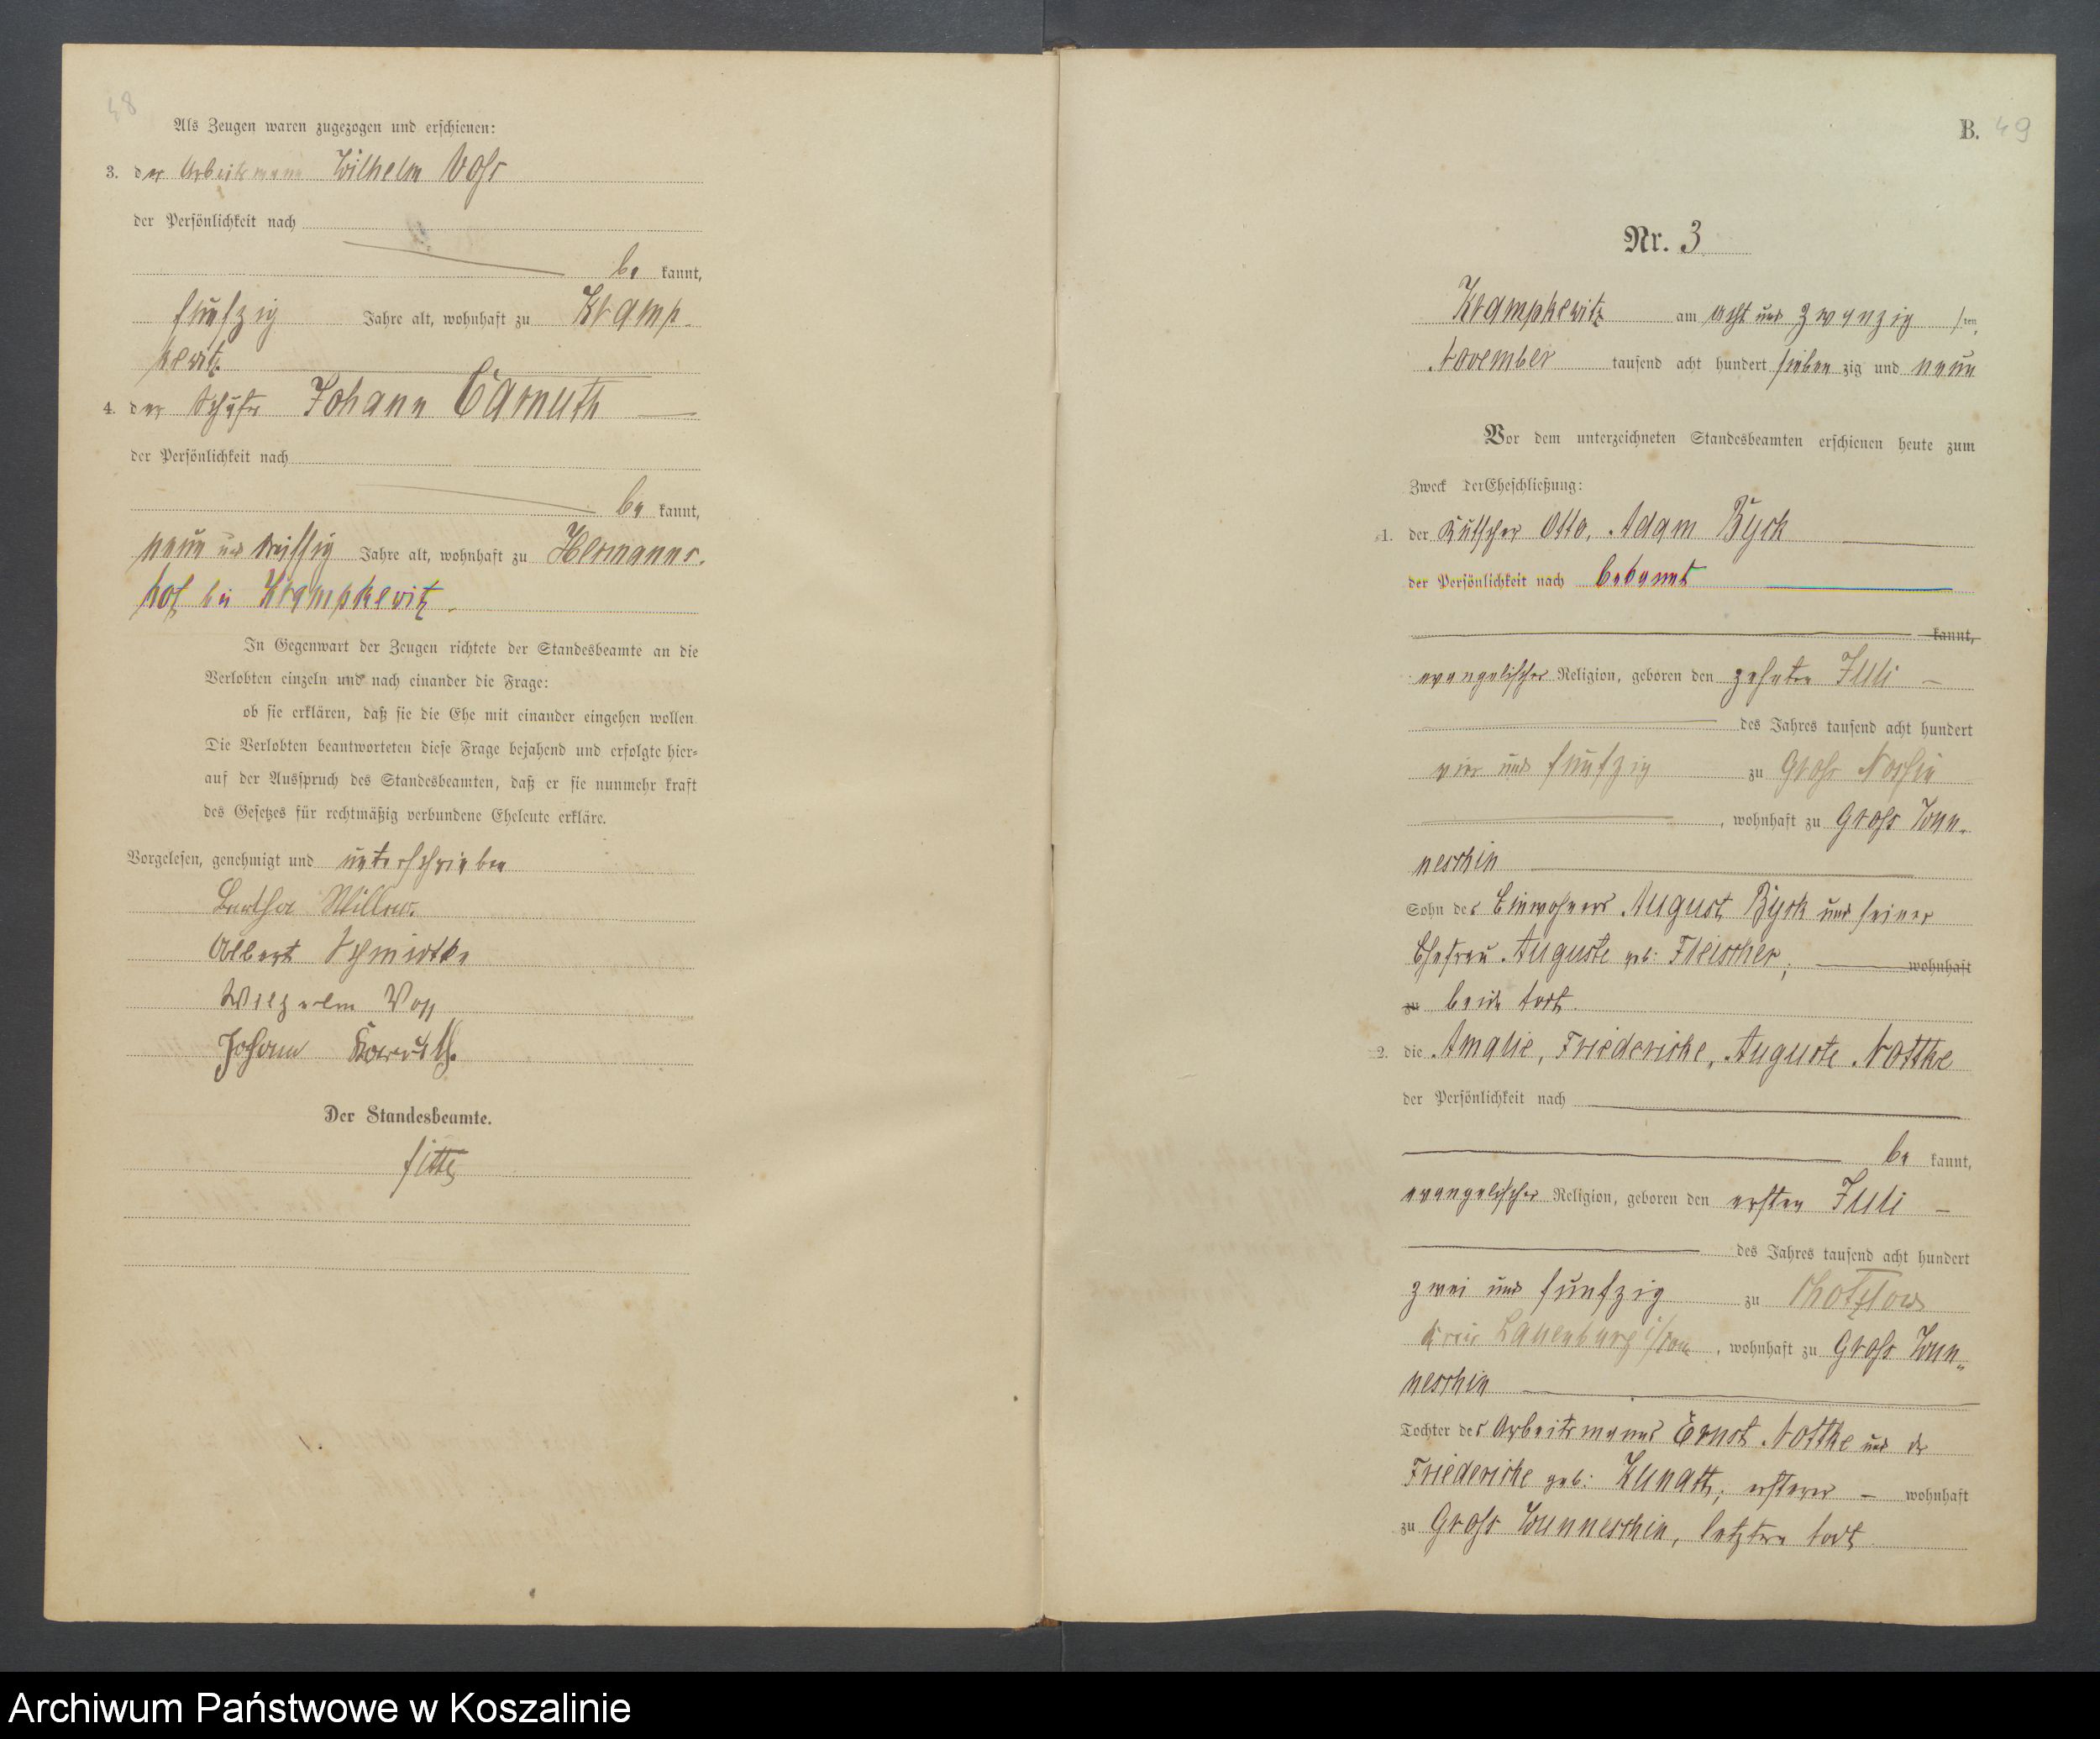 48
Als Zeugen waren zugezogen und erschienen:
3. der Arbeitsmann Wilhelm Voss
der Persönlichkeit nach
be kannt,
funfzig Jahre alt, wohnhaft zu Kramp-
kewitz
4. der Schäfer Johann Carnuth
der Persönlichkeit nach
be kannt,
neun und dreissig Jahre alt, wohnhaft zu Hermanns-
hof bei Krampkewitz.
In Gegenwart der Zeugen richtete der Standesbeamte an die
Verlobten einzeln und nach einander die Frage:
ob sie erklären, daß sie die Ehe mit einander eingehen wollen
Die Verlobten beantworteten diese Frage bejahend und erfolgte hier-
auf der Ausspruch des Standesbeamten, daß er sie nunmehr kraft
des Gesetzes für rechtmäßig verbundene Eheleute erkläre.
Vorgelesen, genehmigt und unterschrieben
Albert Schmidtke
Wilhelm Voss
Johann
Der Standesbeamte.
B. 49
Nr. 3
Krampkewitz am acht und zwanzig sten
November tausend acht hundert sieben zig und neun
Vor dem unterzeichneten Standesbeamten erschienen heute zum
Zweck der Eheschließung:
1. der Kutscher Otto, Adam Zysk
der Persönlichkeit nach bekannt
kannt,
evangelischer Religion, geboren den zehnten Juli
des Jahres tausend acht hundert
vier und funfzig zu Gross Nossin
, wohnhaft zu Gross Wun-
neschin
Sohn des Einwohners August Zysk und seiner
Ehefrau Auguste geb. Fleischer, wohnhaft
zu beide todt.
2. die Amalie, Friedericke, Auguste Nottke
der Persönlichkeit nach
be kannt,
evangelischer Religion, geboren den ersten Juli
des Jahres tausend acht hundert
zwei und funfzig zu Chotzlow
Kreis Lauenburg i/Pom, wohnhaft zu Gross Wun-
neschin
Tochter des Arbeitsmanns Ernst Nottke und der
Friedericke geb. Kunath, ersterer wohnhaft
zu Gross Wunneschin, letztere todt
Archiwum Państwowe w Koszalinie